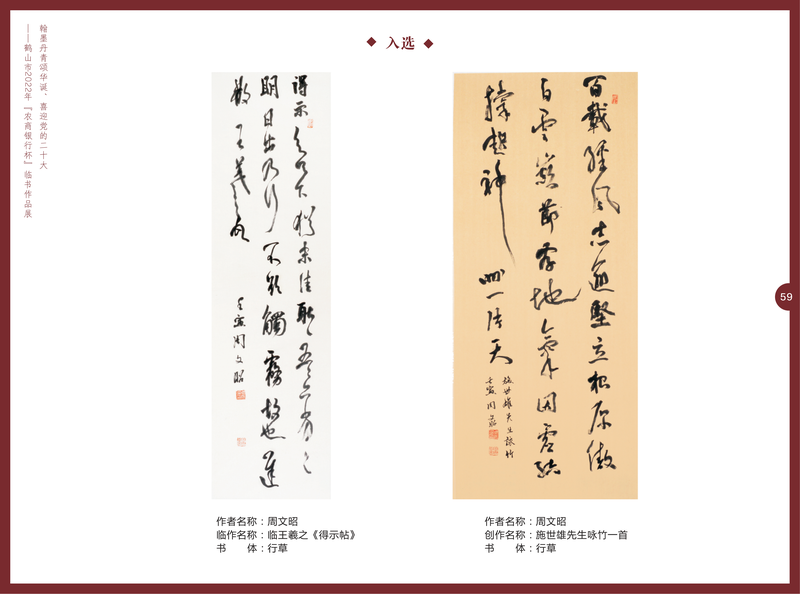 翰墨丹青颂华诞、喜迎党的二十大
——鹤山市2022年『农商银行杯』临书作品展
入选
得示知足下猶未佳耿耿吾亦劣劣
明日出乃行不欲觸霧故也遲
散王羲之頓首
壬寅周文昭
百載經風志逾堅立根原傲
白雲巔節存地氣因虛結
撐起神州一天
施世雄先生詠竹
壬寅周文昭
作者名称：周文昭
临作名称：临王羲之《得示帖》
书　　体：行草
作者名称：周文昭
创作名称：施世雄先生咏竹一首
书　　体：行草
59